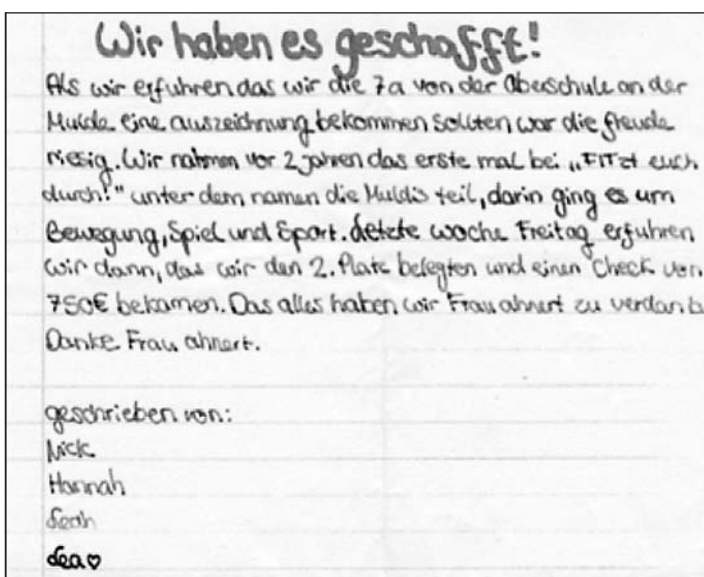 Wir haben es geschafft!
Als wir erfuhren das wir die 7a von der Oberschule an der
Mulde eine auszeichnung bekommen sollten war die freude
riesig. Wir nahmen vor 2 jahren das erste mal bei „FITzt euch
durch!" unter dem namen die Muldis teil, darin ging es um
Bewegung, Spiel und Sport. Letzte woche Freitag erfuhren
wir dann, das wir den 2. Platz belegten und einen Check von
750€ bekamen. Das alles haben wir Frau ahnert zu
Danke Frau ahnert.
geschrieben von:
Nick
Hannah
Leah
Lea♡